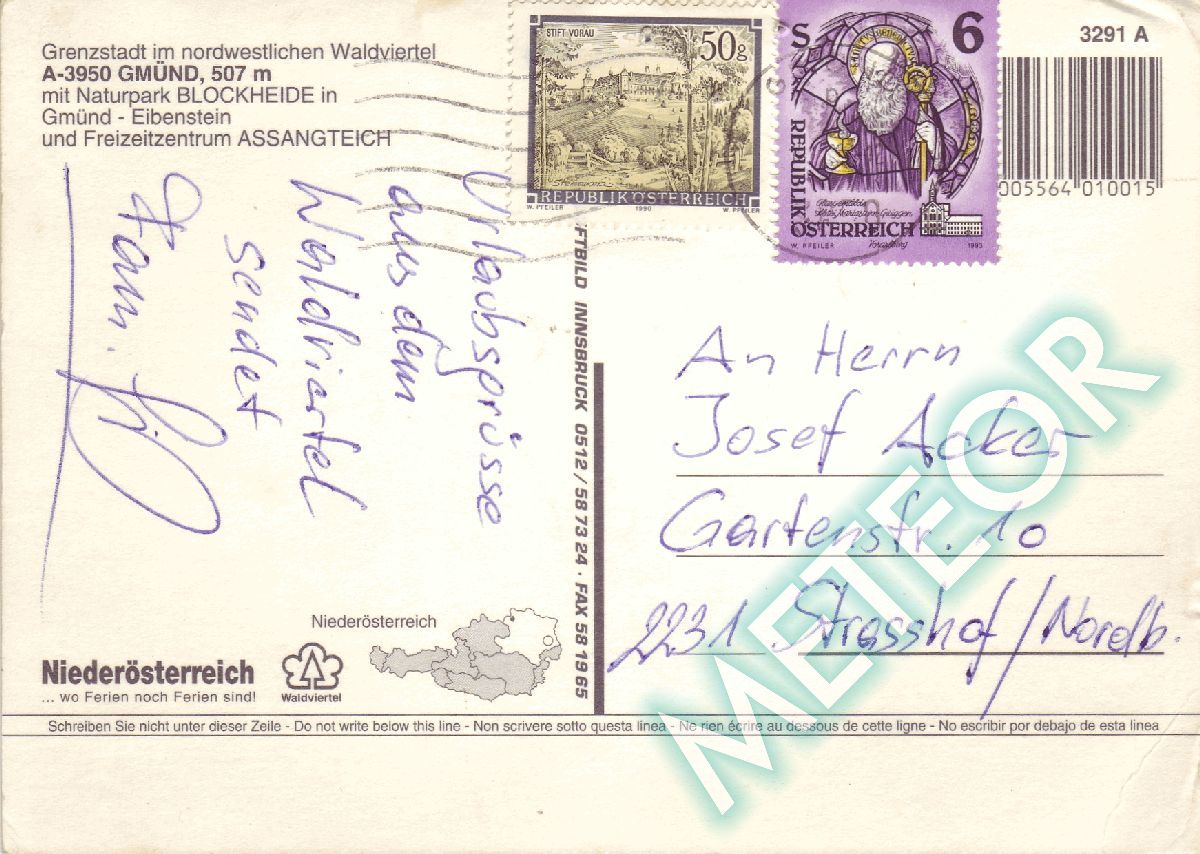 Grenzstadt im nordwestlichen Waldviertel
A-3950 GMÜND, 507 m
mit Naturpark BLOCKHEIDE in
Gmünd - Eibenstein
und Freizeitzentrum ASSANGTEICH
STIFT VORAU
50g
REPUBLIK ÖSTERREICH
W. PFEILER 1990 W. PFEILER
S 6
REPUBLIK
ÖSTERREICH
W. PFEILER 1993
3291 A
005564 010015
Urlaubsgrüsse
aus dem
Waldviertel
sendet
Fam.
FTBILD INNSBRUCK 0512 / 58 73 24 · FAX 58 19 65
An Herrn
Josef Acker
Gartenstr. 10
2231 Strasshof/Nordb.
METEOR
Niederösterreich
Niederösterreich
... wo Ferien noch Ferien sind!
Waldviertel
Schreiben Sie nicht unter dieser Zeile - Do not write below this line - Non scrivere sotto questa linea - Ne rien écrire au dessous de cette ligne - No escribir por debajo de esta linea